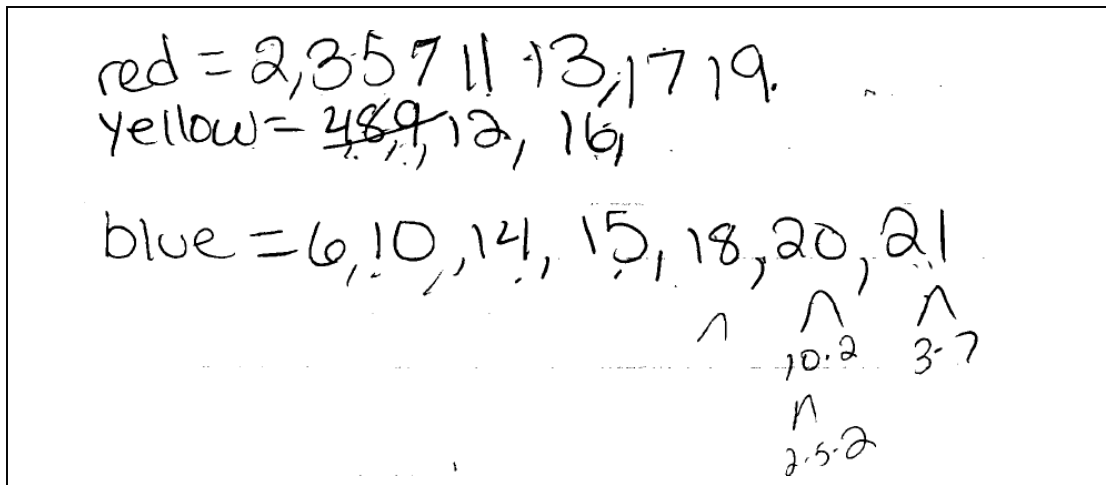 red = 2,3 5 7 11 13,17 19.
yellow = 4,8,9,12, 16,
blue = 6,10,14, 15, 18,20,21
10·2 3·7
2·5·2